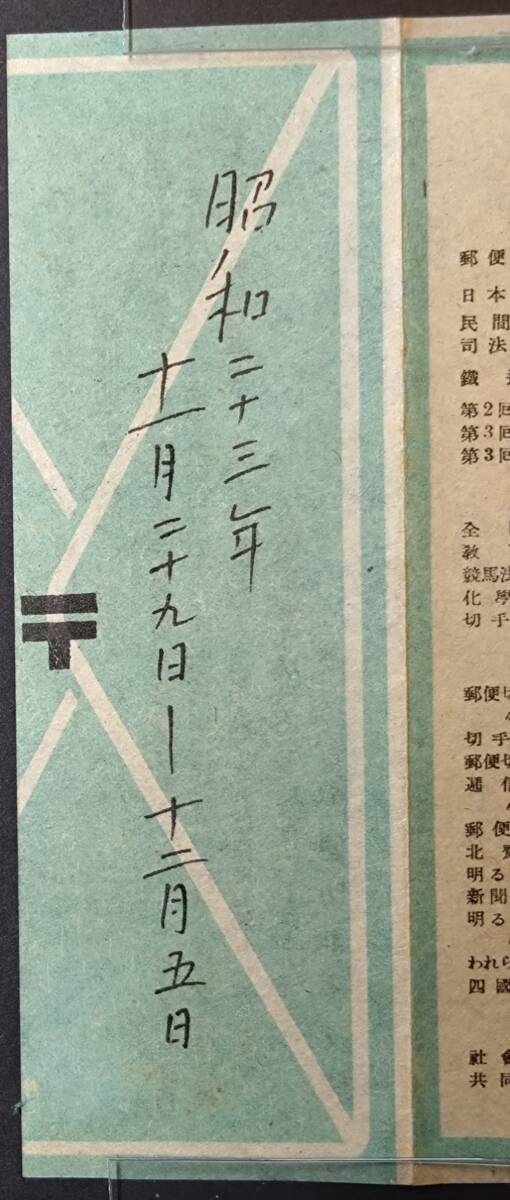 昭和二十三年
十一月二十九日—十二月五日
〒
郵便
日本
民間
司法
鐵
第2回
第3回
第3回
全
教
競馬法
化學
切手
郵便切
切手
郵便切
遞信
郵便
北
明る
新聞
明る
われら
四國
社會
共同